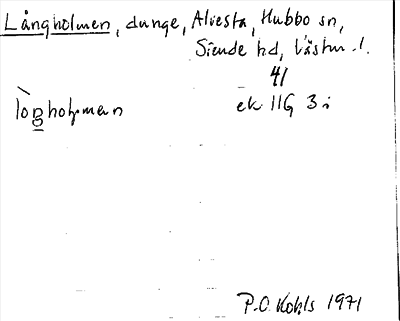 Långholmen, dunge, Alvesta, Hubbo sn,
Siende hd, Västm. l.
41
lòŋhoḷmen
ek 11G 3 i
P.O. Kohls 1971